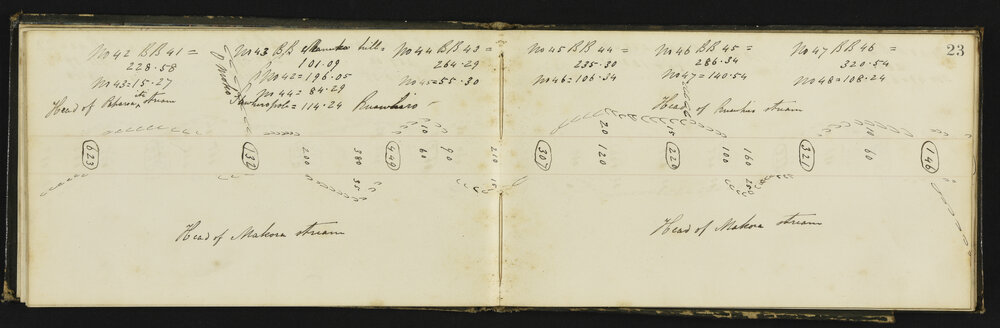 23
No 42 BB 41 =
228.58
No 43 = 15.27
Head of stream
No 43 BB hill =
101.09
No 42 = 196.05
No 44 = 84.29
= 114.24
No 44 BB 43 =
264.29
No 45 = 55.30
No 45 BB 44 =
235.30
No 46 = 106.34
No 46 BB 45 =
286.34
No 47 = 140.54
Head of stream
No 47 BB 46 =
320.54
No 48 = 108.24
623
132
200
380
35
440
10
60
90
210
10
307
20
120
220
15
100
160
200
321
10
60
146
Head of Makora stream
Head of Makora stream